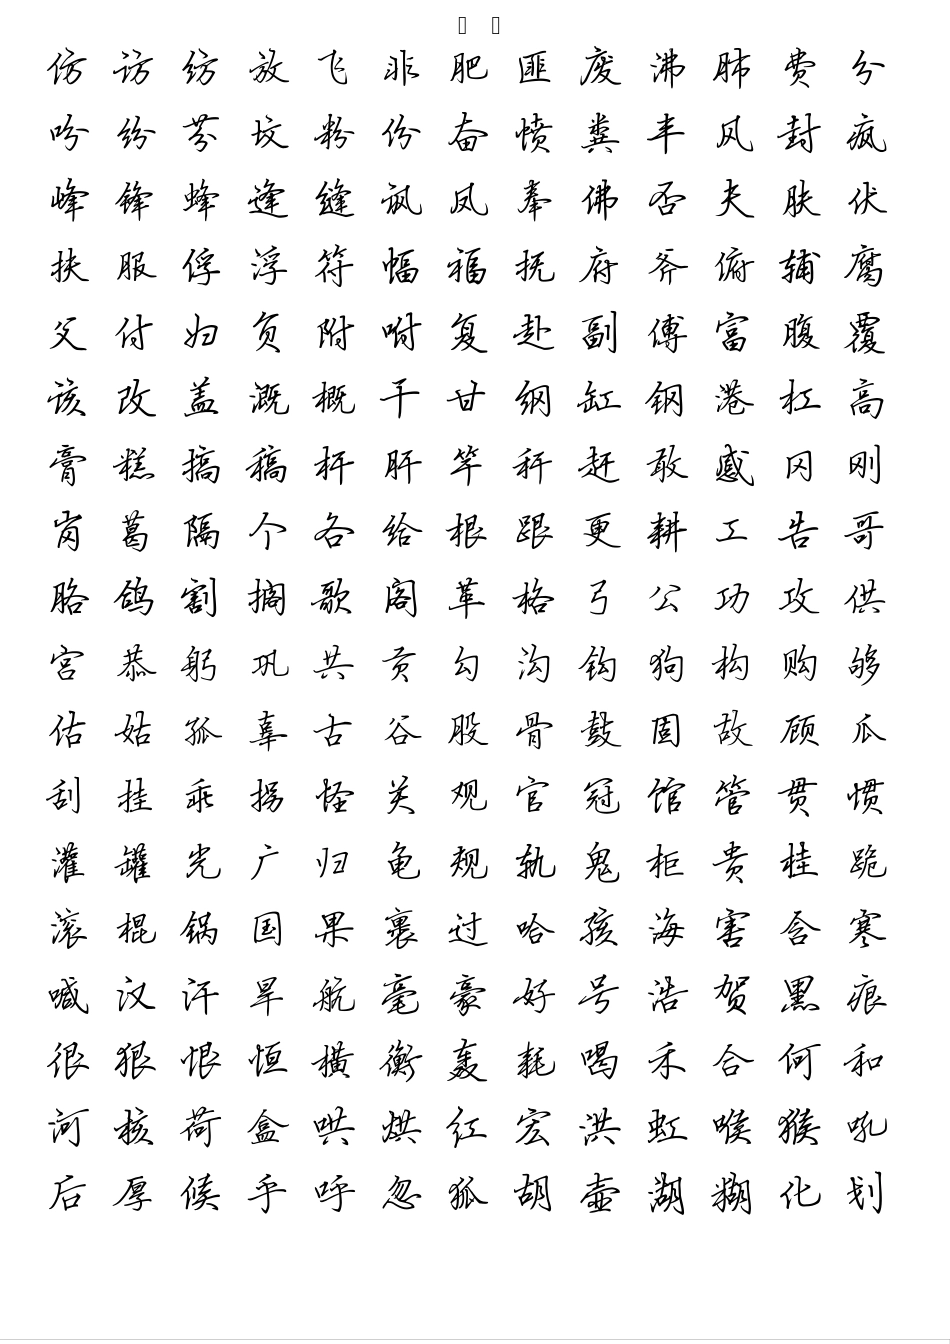 仿 访 纺 放 飞 非 肥 匪 废 沸 肺 费 分
吩 纷 芬 坟 粉 份 奋 愤 粪 丰 风 封 疯
峰 锋 蜂 逢 缝 讽 凤 奉 佛 否 夫 肤 伏
扶 服 俘 浮 符 幅 福 抚 府 斧 俯 辅 腐
父 付 妇 负 附 咐 复 赴 副 傅 富 腹 覆
该 改 盖 溉 概 干 甘 纲 缸 钢 港 杠 高
膏 糕 搞 稿 杆 肝 竿 秆 赶 敢 感 冈 刚
岗 葛 隔 个 各 给 根 跟 更 耕 工 告 哥
胳 鸽 割 搁 歌 阁 革 格 弓 公 功 攻 供
宫 恭 躬 巩 共 贡 勾 沟 钩 狗 构 购 够
估 姑 孤 辜 古 谷 股 骨 鼓 固 故 顾 瓜
刮 挂 乖 拐 怪 关 观 官 冠 馆 管 贯 惯
灌 罐 光 广 归 龟 规 轨 鬼 柜 贵 桂 跪
滚 棍 锅 国 果 裹 过 哈 孩 海 害 含 寒
喊 汉 汗 旱 航 毫 豪 好 号 浩 贺 黑 痕
很 狠 恨 恒 横 衡 轰 耗 喝 禾 合 何 和
河 核 荷 盒 哄 烘 红 宏 洪 虹 喉 猴 吼
后 厚 候 乎 呼 忽 狐 胡 壶 湖 糊 化 划